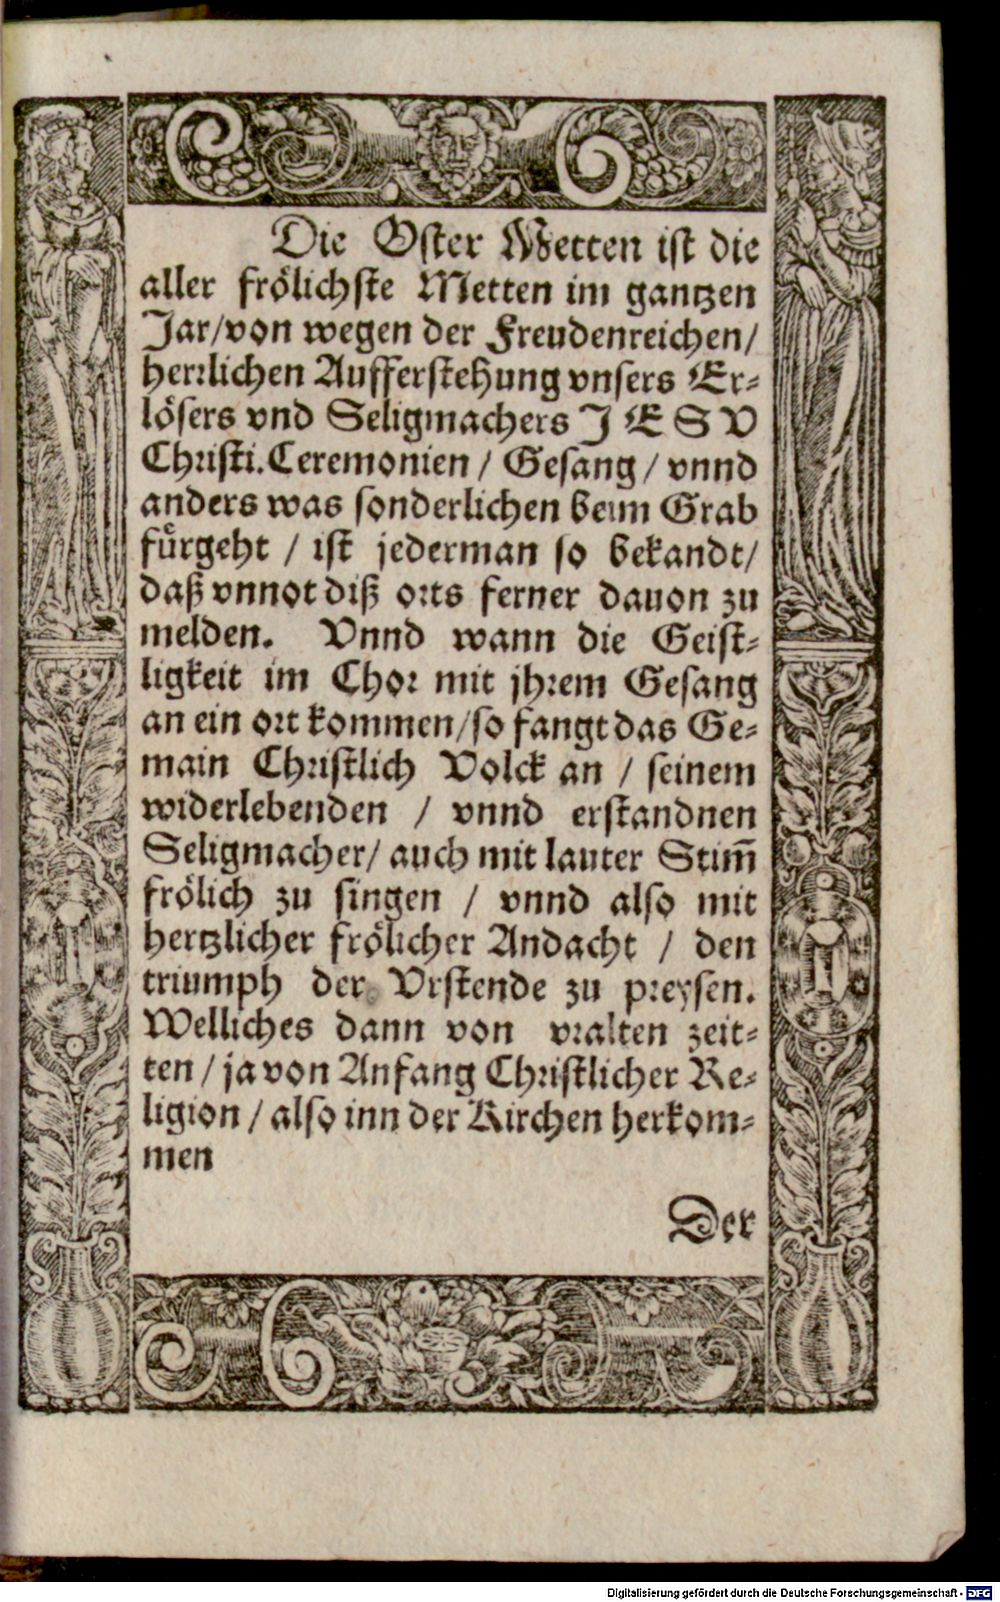 Die Oster Metten ist die
aller frölichste Metten im gantzen
Jar/von wegen der Freudenreichen/
herrlichen Aufferstehung vnsers Er-
lösers vnd Seligmachers J E S V
Christi. Ceremonien / Gesang / vnnd
anders was sonderlichen beim Grab
fürgeht / ist jederman so bekandt/
daß vnnot diß orts ferner dauon zu
melden. Vnnd wann die Geist-
ligkeit im Chor mit jhrem Gesang
an ein ort kommen/so fangt das Ge-
main Christlich Volck an / seinem
widerlebenden / vnnd erstandnen
Seligmacher/ auch mit lauter Stim̃
frölich zu singen / vnnd also mit
hertzlicher frölicher Andacht / den
triumph der Vrstende zu preysen.
Welliches dann von vralten zeit-
ten / ja von Anfang Christlicher Re-
ligion / also inn der Kirchen herkom-
men
Der
Digitalisierung gefördert durch die Deutsche Forschungsgemeinschaft - DFG